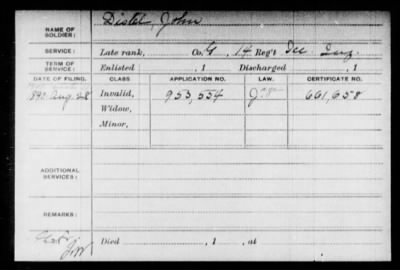 NAME OF SOLDIER: Distel, John
SERVICE: Late rank, Co. G, 14 Reg't Inf.
TERM OF SERVICE: Enlisted , 1 Discharged , 1
DATE OF FILING. CLASS APPLICATION NO. LAW. CERTIFICATE NO.
1890 Aug. 28 Invalid, 953,554 661,658
Widow,
Minor,
ADDITIONAL SERVICES:
REMARKS:
Died , 1 , at